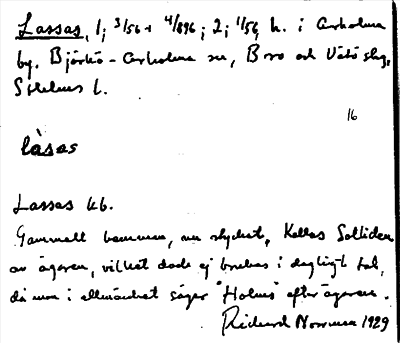 Lassas, 1; 3/56 + 4/896; 2; 1/56, h. i Arholma
by. Björkö-Arholma sn, Bro och Vätö slg,
Sthlms l.
16
låsas
Lassas ub.
Gammalt hemman, nu stycket, Kallas Soltiden
av ägaren, vilket dock ej brukas i dagligt tal,
då man i allmänhet säger "Holms" efter ägaren.
Richard 1929